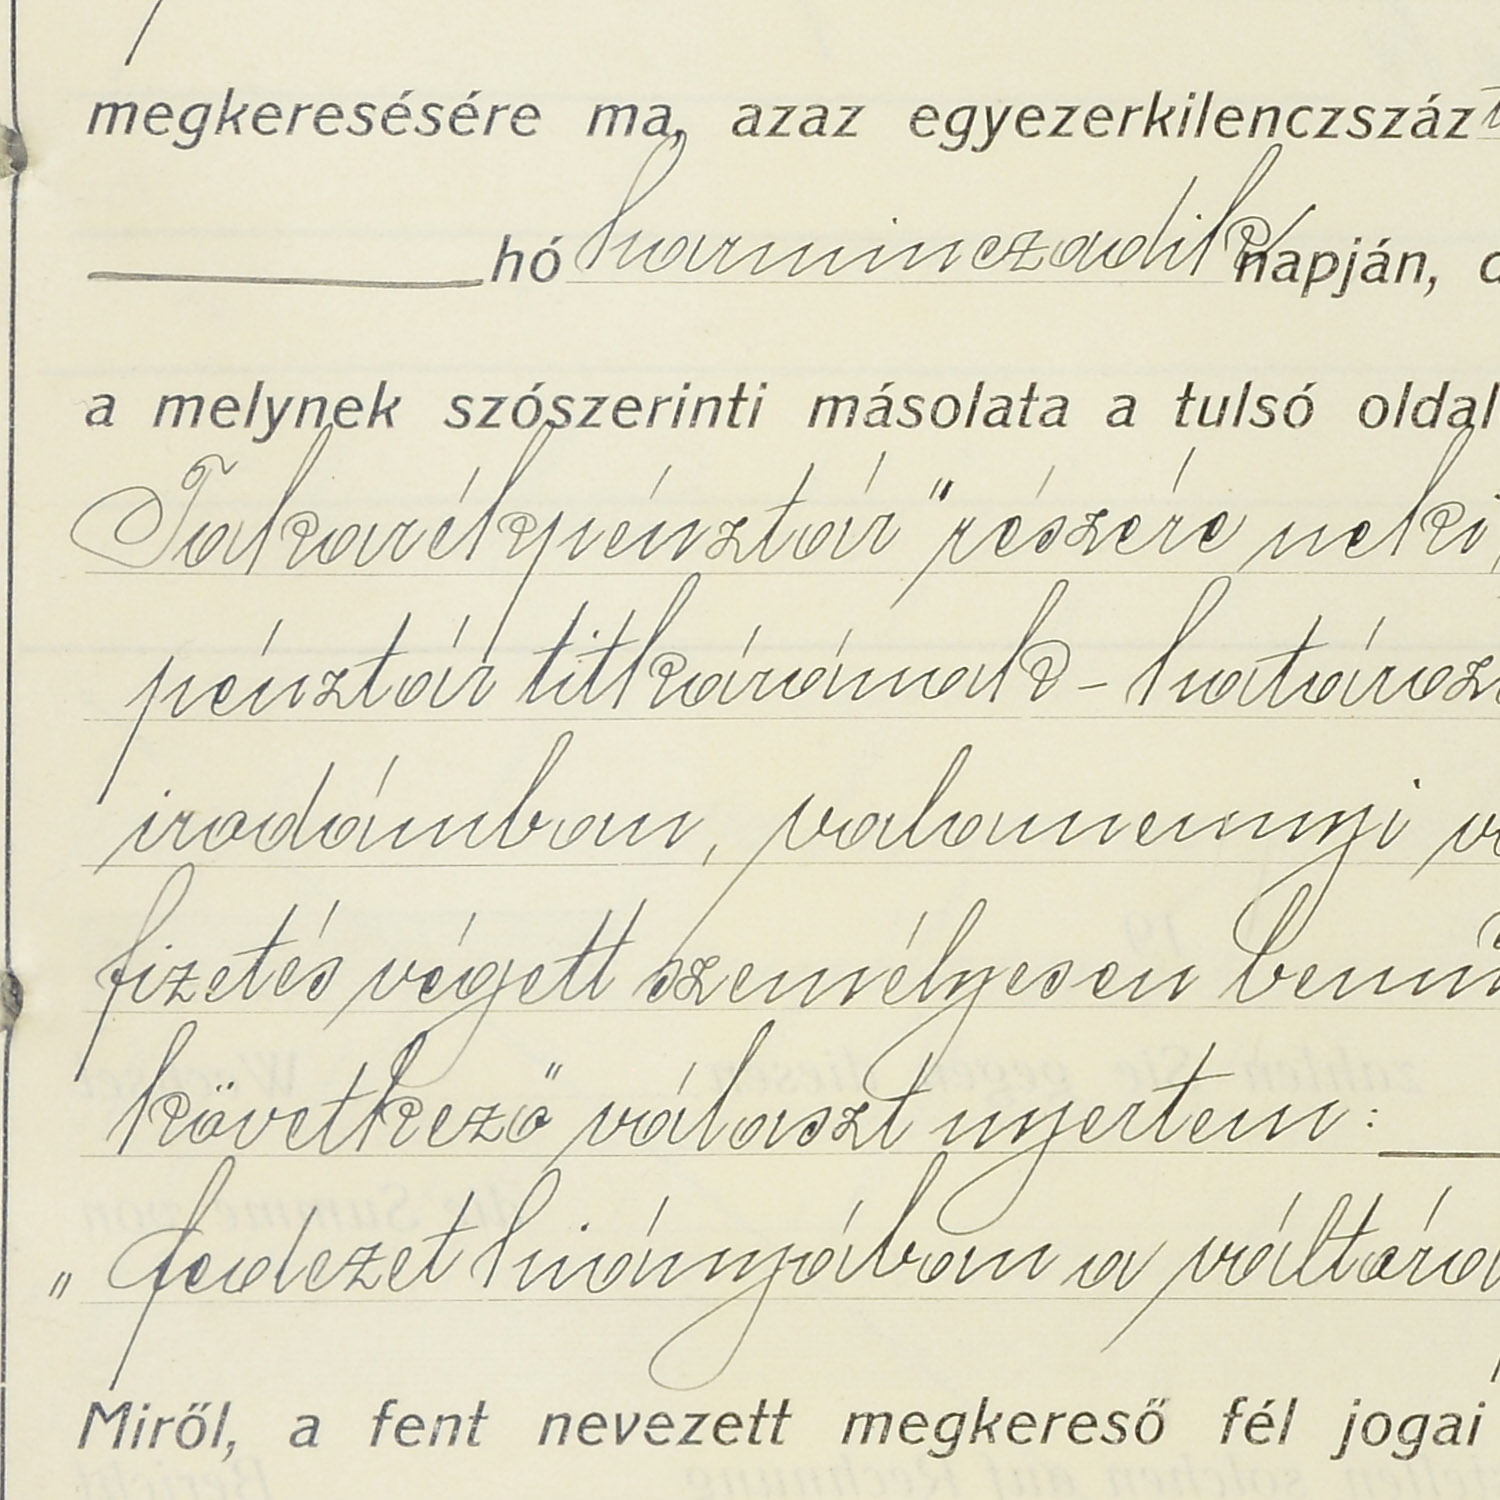 megkeresésére ma, azaz egyezerkilenczszáz
hó harminczadik napján,
a melynek szószerinti másolata a tulsó oldal
Takarékpénztár" részére neki,
pénztár titkárának - határoz
irodámban, valamennyi
fizetés végett személyesen
következő" választ nyertem:
„ fedezet hiányában a
Miről, a fent nevezett megkereső fél jogai